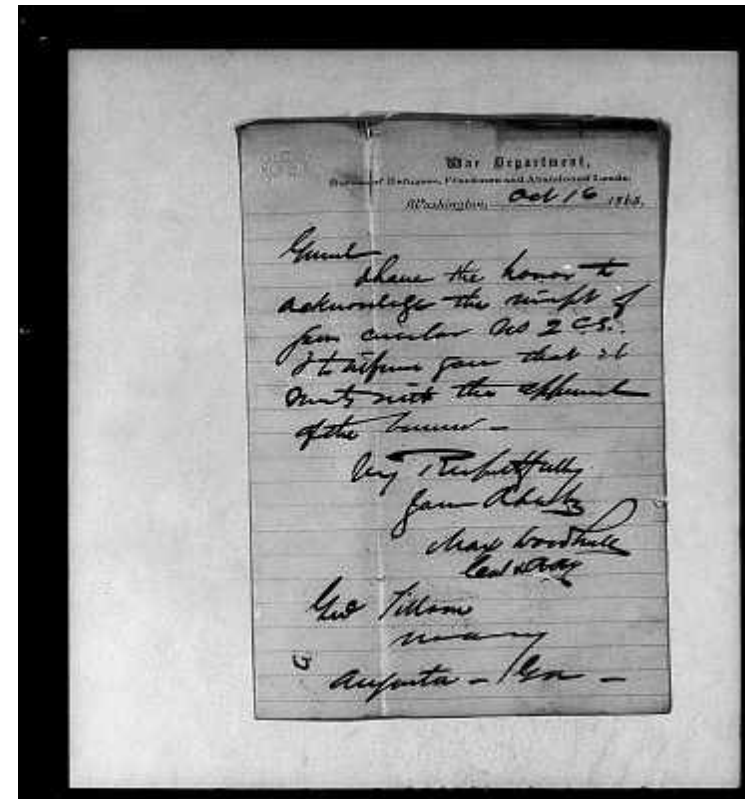 War Department,
Bureau of Refugees, Freedmen and Abandoned Lands.
Washington, Oct 16 1865.
Genrl
I have the honor to
acknowledge the receipt of
your circular No 2 C.S.
& to inform you that it
meets with the approval
of the bureau -
Very Respectfully
Your Obt Svt
Max Woodhull
Col & AAG
Genl Tillson
Augusta - Ga -